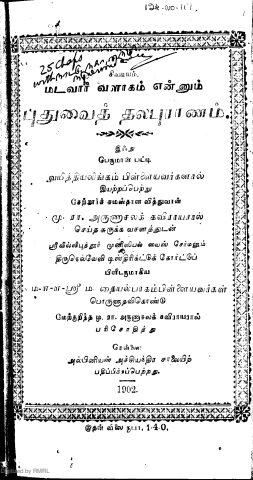 25 Chaps
சிவமயம்.
மடவார் வளாகம் என்னும்
புதுவைத் தலபுராணம்.
இஃது
பெருமாள் பட்டி
இயற்றப்பெற்று
சேற்றூர்ச் சமஸ்தான வித்துவான்
மு. ரா. அருணாசலக் கவிராயரால்
செய்த சுருக்க வசனத்துடன்
ஸ்ரீவில்லிபுத்தூர் முனிஸிபல் சேர்மனும்
திருநெல்வேலி டிஸ்திரிக்ட்டுக் கோர்ட்டு
பிளீடருமாகிய
ம-ள-ள-ஸ்ரீ ம. தையல்பாகம்பிள்ளையவர்கள்
பொருளுதவிகொண்டு
மேற்குறித்த மு. ரா. அருணாசலக் கவிராயரால்
பரிசோதித்து
சென்னை:
அல்பினியன் அச்சியந்திர சாலையிற்
பதிப்பிக்கப்பெற்றது.
1902.
இதன் விலை ரூபா, 1-4-0.
by RMRL